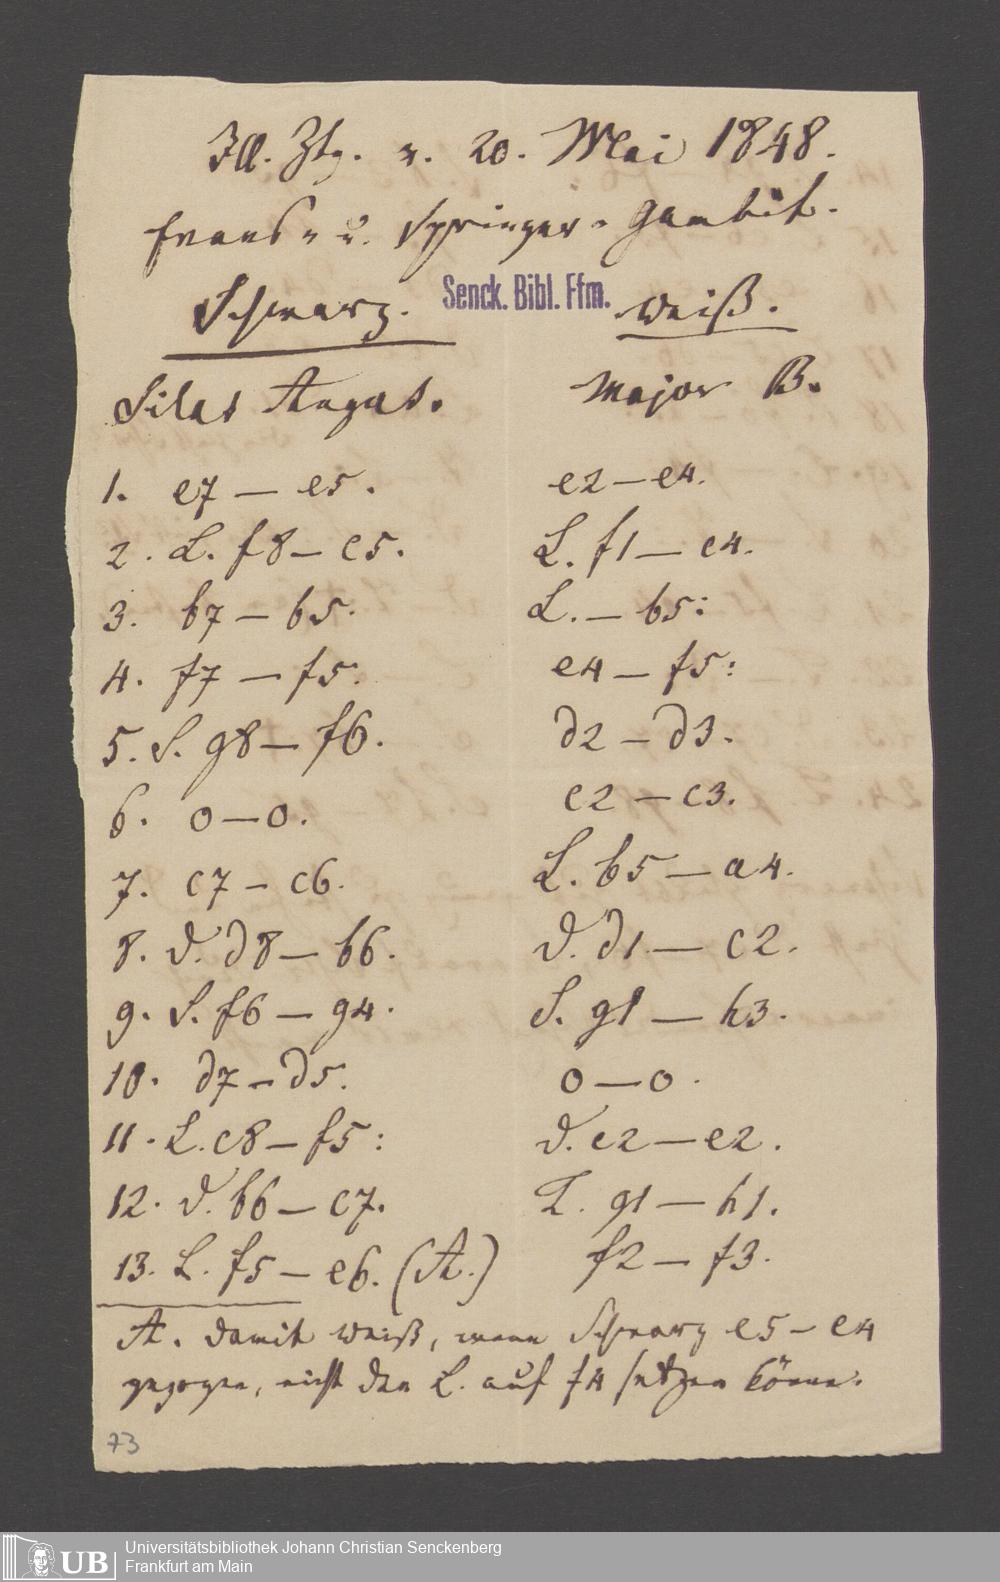 Ill. Ztg. v. 20. Mai 1848.
Evans- u. Springer-Gambit.
Schwarz. Weiß.
Senck. Bibl. Ffm.
Silas Angas. Major B.
1. e7 — e5. e2 — e4.
2. L. f8 — c5. L. f1 — c4.
3. b7 — b5. L. — b5:
4. f7 — f5. e4 — f5:
5. S. g8 — f6. d2 — d3.
6. o — o. c2 — c3.
7. c7 — c6. L. b5 — a4.
8. D. d8 — b6. D. d1 — c2.
9. S. f6 — g4. S. g1 — h3.
10. d7 — d5. o — o.
11. L. c8 — f5: D. c2 — e2.
12. D. b6 — c7. T. g1 — h1.
13. L. f5 — e6. (A.) f2 — f3.
A. Damit Weiß, wenn Schwarz e5 — e4
gezogen, nicht den L. auf f4 setzen könne.
73
UB
Universitätsbibliothek Johann Christian Senckenberg
Frankfurt am Main